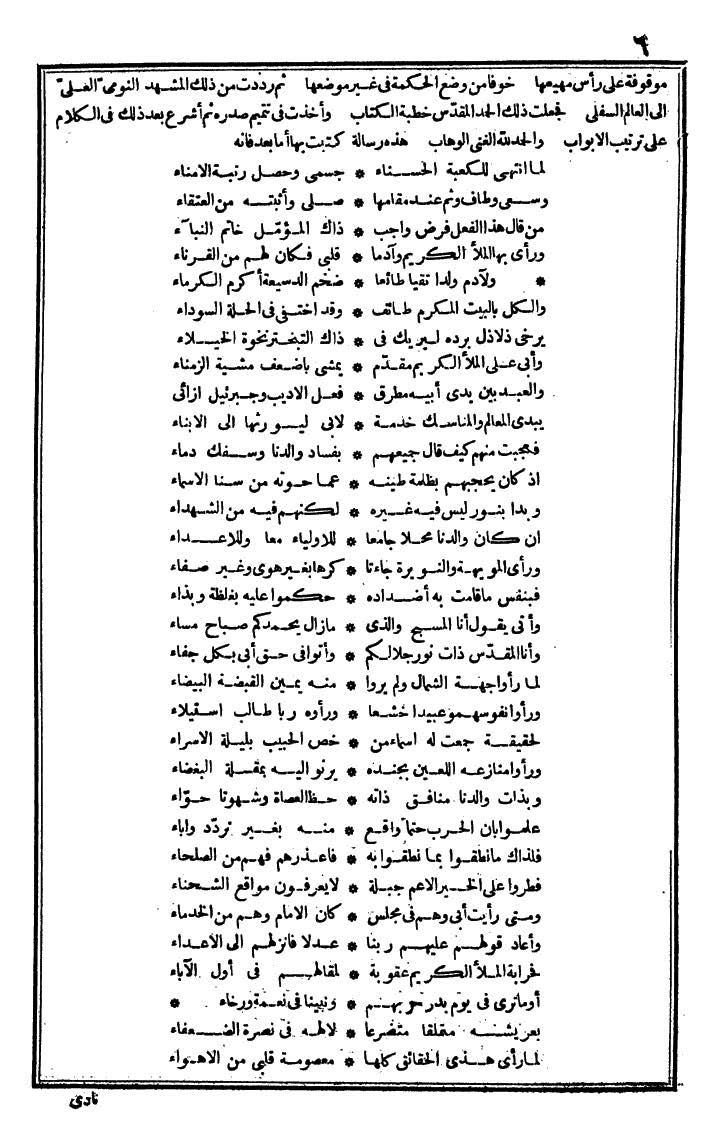 ٦
موقوفة على رأس مهيعها خوفا من وضع الحكمة في غير موضعها ثم رددت من ذلك المشهد النومي العلي
الى العالم السفلي فجعلت ذلك الحمد المقدس خطبة الكتاب وأخذت في تتميم صدره ثم أشرع بعد ذلك في الكلام
على ترتيب الابواب والحمد لله الغني الوهاب هذه رسالة كتبت بها أما بعد فانه
لما انتهى للكعبة الحسناء * جسمى وحصل رتبة الامناء
وسعى وطاف وثم عند مقامها * صلى وأثبته من العتقاء
من قال هذا الفعل فرض واجب * ذاك المؤمّل خاتم النبآء
ورأى بها الملأ الكريم وآدما * قلبى فكان لهم من القرناء
* ولآدم ولدا تقيا طائعا * ضخم الدسيعة أكرم الكرماء
والكل بالبيت المكرم طائف * وقد اختفى فى الحلة السوداء
يرخى ذلاذل برده ليريك فى * ذاك التبختر نخوة الخيلاء
وأبى على الملأ الكريم مقدّم * يمشى باضعف مشية الزمناء
والعبد بين يدى أبيه مطرق * فعل الاديب وجبرئيل ازائى
يبدى المعالم والمناسك خدمة * لابى ليورثها الى الابناء
فعجبت منهم كيف قال جميعهم * بفساد والدنا وسفك دماء
اذ كان يحجبهم بظلمة طينه * عما حوته من سنا الاسماء
وبدا بنور ليس فيه غيره * لكنهم فيه من الشهداء
ان كان والدنا محلا جامعا * للاولياء معا وللاعداء
ورأى المويهة والنويرة جاءتا * كرها بغير هوى وغير صفاء
فبنفس ماقامت به أضداده * حكموا عليه بغلظة وبذاء
وأتى يقول أنا المسبح والذى * مازال يحمدكم صباح مساء
وأنا المقدّس ذات نور جلالكم * وأتوا فى حق أبى بكل جفاء
لما رأوا جهة الشمال ولم يروا * منه يمين القبضة البيضاء
ورأوا نفوسهمو عبيدا خشعا * ورأوه ربا طالب استيلاء
لحقيقة جمعت له اسماء من * خص الحبيب بليلة الاسراء
ورأوا منازعه اللعين بجنده * يرنو اليه بمقلة البغضاء
وبذات والدنا منافق ذاته * حظ العصاة وشهوتا حوّاء
علموا بان الحرب حتما واقع * منه بغير تردّد واباء
فلذاك ما نطقوا بما نطقوا به * فاعذرهم فهم من الصلحاء
فطروا على الخير الاعم جبلة * لا يعرفون مواقع الشحناء
ومتى رأيت أبى وهم فى مجلس * كان الامام وهم من الخدماء
وأعاد قولهم عليهم ربنا * عدلا فانزلهم الى الاعداء
فحرابة الملأ الكريم عقوبة * لمقالهم فى أول الآباء
أو ماترى فى يوم بدر حربهم * ونبينا فى نعمة ورخاء *
بعريشه متملقا متضرعا * لالهه فى نصرة الضعفاء
لما رأى هذى الحقائق كلها * معصومة قلبى من الاهواء
نادى